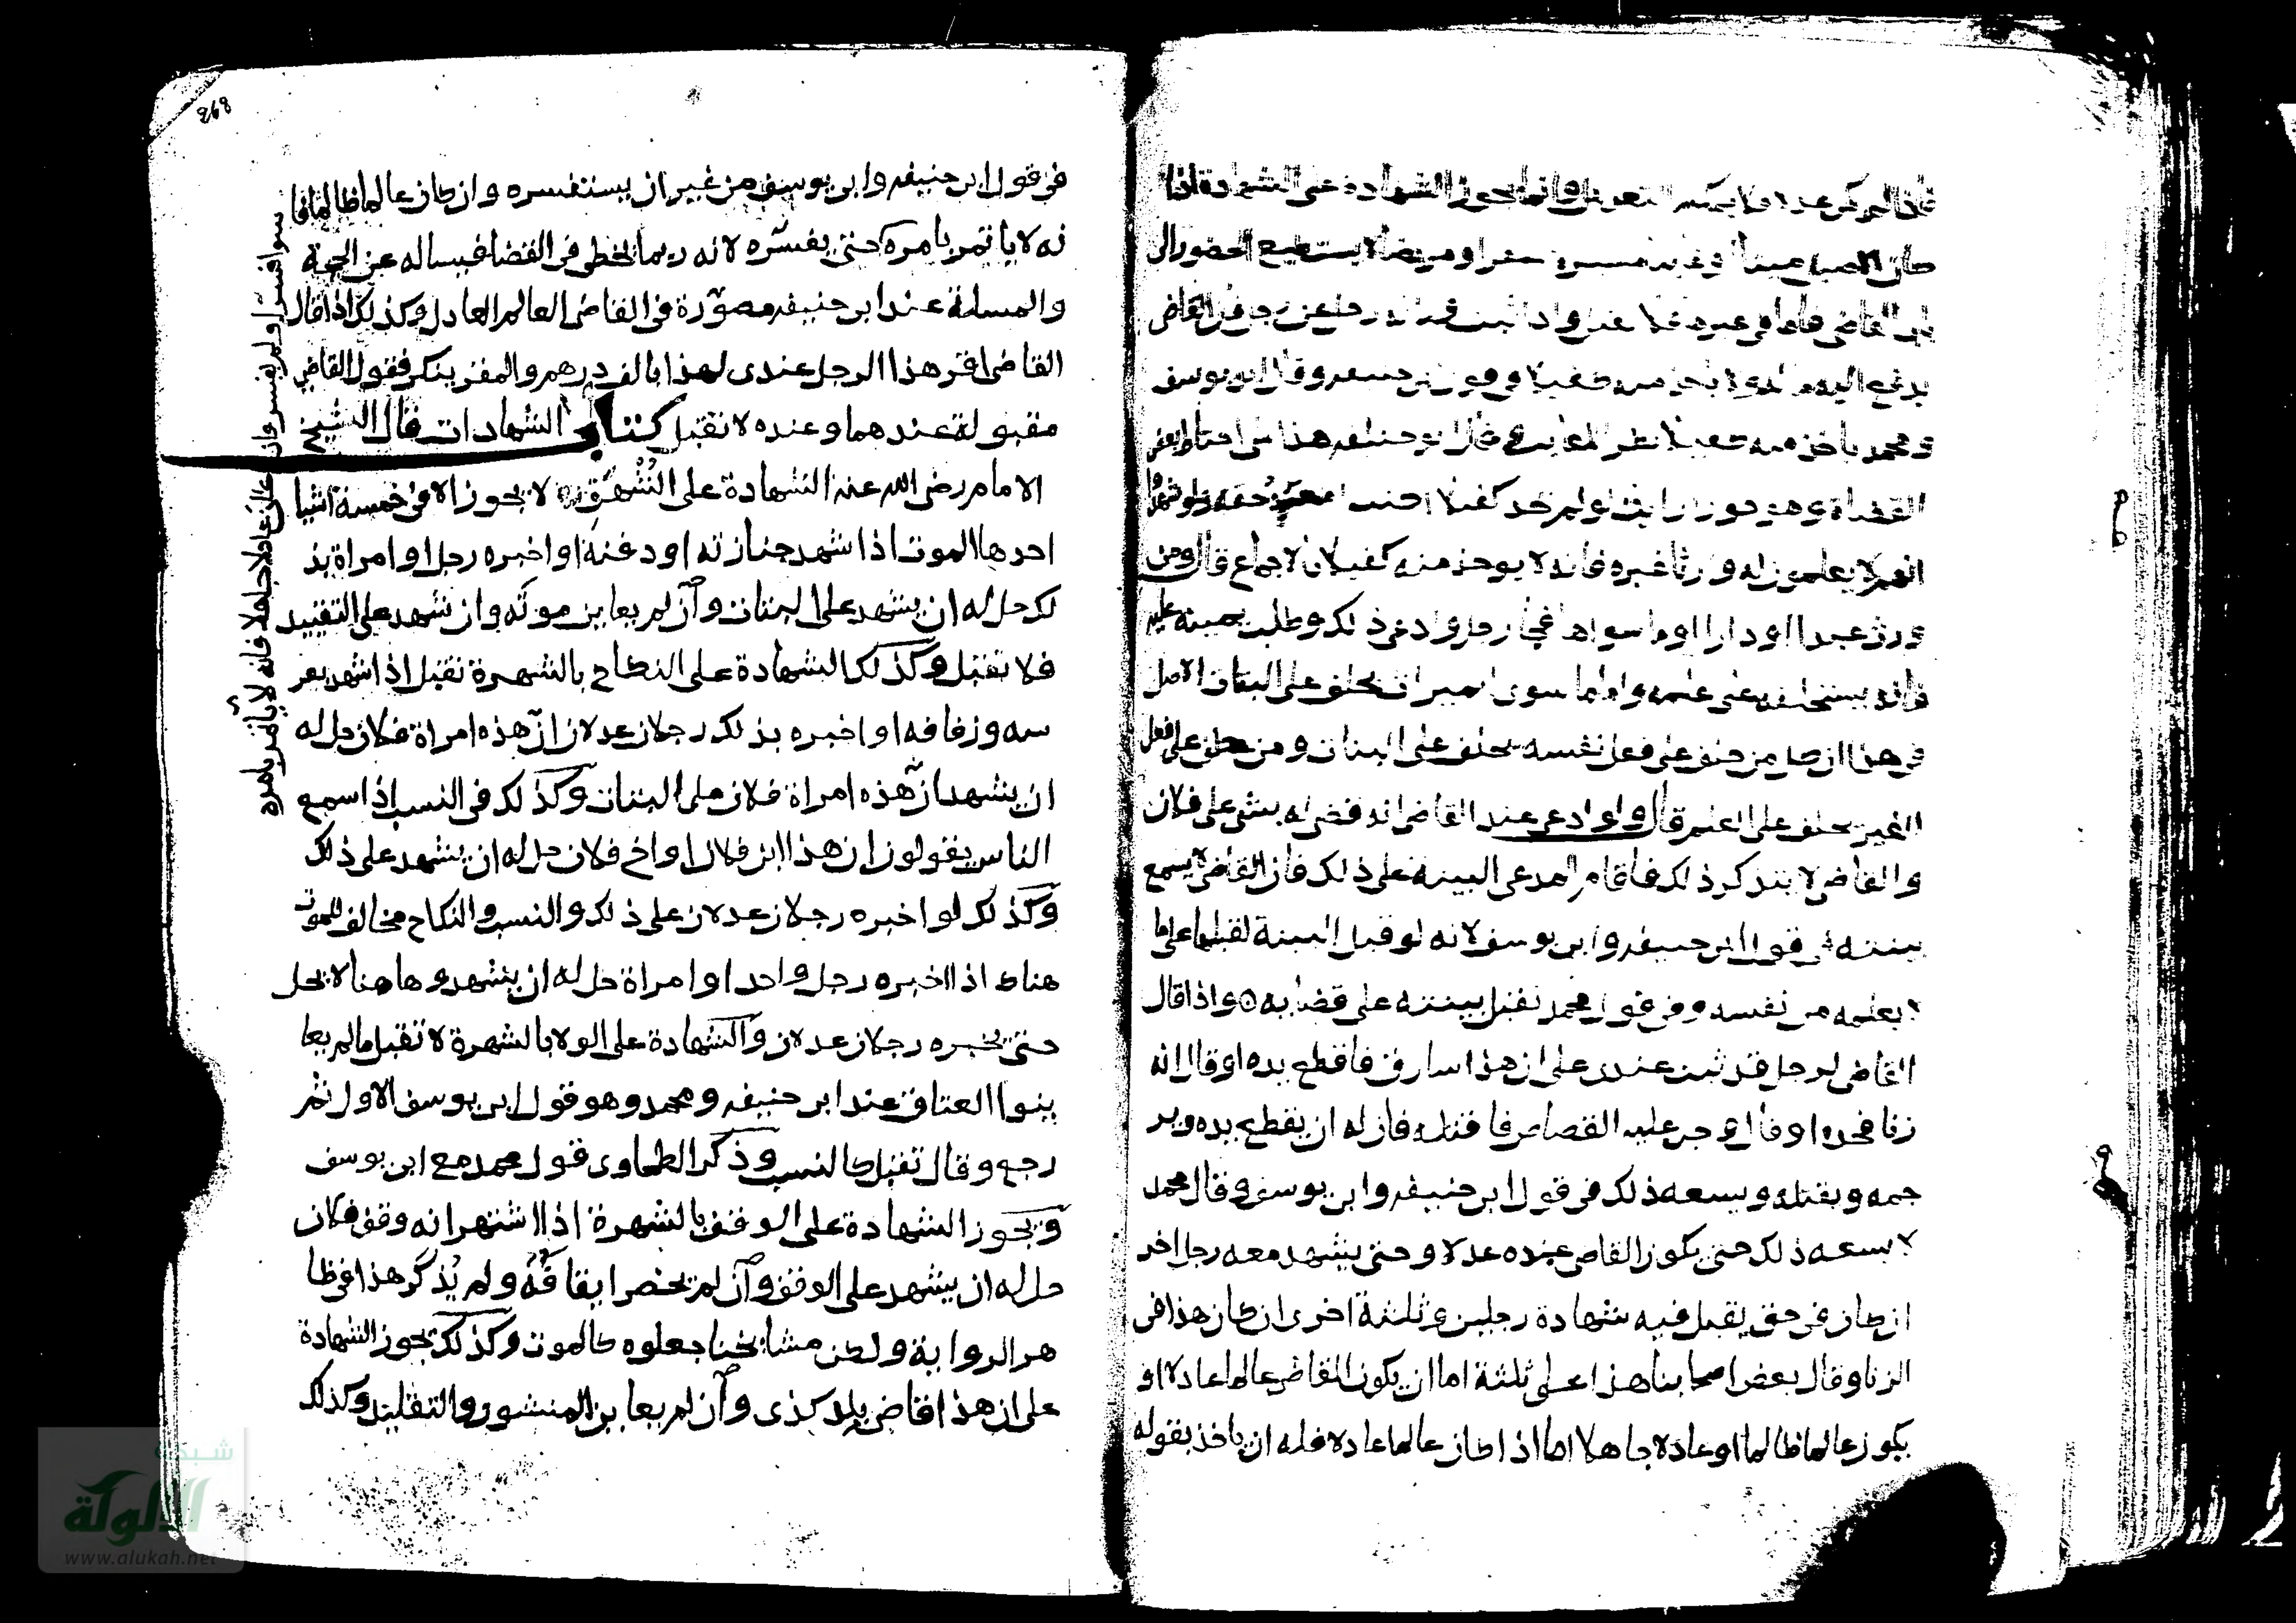 فان لم يكن عدلا فلا يمكنه التعديل وانما يجوز الشهادة على الشهادة اذا
كان الاصل ميتا او غايبا مسيرة سفر او مريضا لا يستطيع الحضور الى
باب القاضي فاما في غيره فلا
يدفع اليه ماله ولا ياخذ منه كفيلا في قول ابي حنيفه وقال ابو يوسف
ومحمد ياخذ منه كفيلا نظرا للغايب وقال ابو حنيفه هذا شي احتاط به بعض
القضاة وهو جور ارايت لو لم يجد كفيلا احنت امنعه حقه ولو شهدوا
انهم لا يعلمون له وارثا غيره فانه لا يوخذ منه كفيلا بالاجماع قال ومن
ورث عبدا او دارا او ما سواها فجا رجل وادعى ذلك وطلب يمينه عليه
فانه يستحلف على علمه واما ما سوى الميراث يحلف على البتات الاصل
في هذا ان كل من حلف على فعل نفسه يحلف على البتات ومن حلف على فعل
الغير يحلف على العلم قال ولو ادعى عند القاضي انه قضى له بشي على فلان
والقاضي لا يتذكر ذلك فاقام المدعي البينة على ذلك فان القاضي لا يسمع
بينته في قول ابي حنيفه وابي يوسف لانه لو قبل البينة لقبلها على ما
لا يعلمه من نفسه وفي قول محمد تقبل بينته على قضايه ه واذا قال
القاضي لرجل قد ثبت عندي على ان هذا سارق فاقطع يده او قال انه
زنا فحده او قال وجب عليه القصاص فاقتله فان له ان يقطع يده وير
جمه ويقتله ويسعه ذلك في قول ابي حنيفه وابي يوسف وقال محمد
لا يسعه ذلك حتى يكون القاضي عنده عدلا وحتى يشهد معه رجل اخر
ان كان في حق يقبل فيه شهادة رجلين وثلثة اخرى ان كان هذا في
الزنا وقال بعض اصحابنا هذا على ثلثة اما ان يكون القاضي عالما عادلا او
يكون عالما ظالما او عادلا جاهلا اما اذا كان عالما عادلا فله ان ياخذ بقوله
في قول ابي حنيفه وابي يوسف من غير ان يستفسره وان كان عالما ظالما فا
نه لا ياتمر بامره حتى يفسره لانه ربما يخطي في القضا فيساله عن الجهة
والمسلة عند ابي حنيفه مصورة في القاضي العالم العادل وكذلك اذا قال
القاضي اقر هذا الرجل عندي لهذا بالف درهم والمقر ينكر فقول القاضي
مقبولة عندهما وعنده لا تقبل كتاب الشهادات قال الشيخ
الامام رضي الله عنه الشهادة على الشهرة لا يجوز الا في خمسة اشيا
احدها الموت اذا شهد جنازته او دفنه او اخبره رجل او امراة بذ
لك حل له ان يشهد على البتات وان لم يعاين موته وان شهد على التقييد
فلا تقبل وكذلك الشهادة على النكاح بالشهرة تقبل اذا شهد بعر
سه وزفافه او اخبره بذلك رجلان عدلان ان هذه امراة فلان حل له
ان يشهد ان هذه امراة فلان على البتات وكذلك في النسب اذا سمع
الناس يقولون ان هذا ابن فلان او اخ فلان حل له ان يشهد على ذلك
وكذلك لو اخبره رجلان عدلان على ذلك والنسب والنكاح مخالف للموت
هناك اذا اخبره رجل واحد او امراة حل له ان يشهد وها هنا لا يحل
حتى يخبره رجلان عدلان والشهادة على الولا بالشهرة لا تقبل ما لم يعا
ينوا العتاق عند ابي حنيفه ومحمد وهو قول ابي يوسف الاول ثم
رجع وقال تقبل كالنسب وذكر الطحاوي قول محمد مع ابي يوسف
ويجوز الشهادة على الوقف بالشهرة اذا اشتهر انه وقف فلان
حل له ان يشهد على الوقف وان لم يحضر ايقافه ولم يذكر هذا في ظا
هر الرواية ولكن مشايخنا جعلوه كالموت وكذلك يجوز الشهادة
على ان هذا قاضي بلد كذى وان لم يعاين المنشور والتقليد وكذلك
سوا فسر او لم يفسر وان كان عادلا جاهلا فانه لا ياتمر بامره
شبكة
الألوكة
www.alukah.net